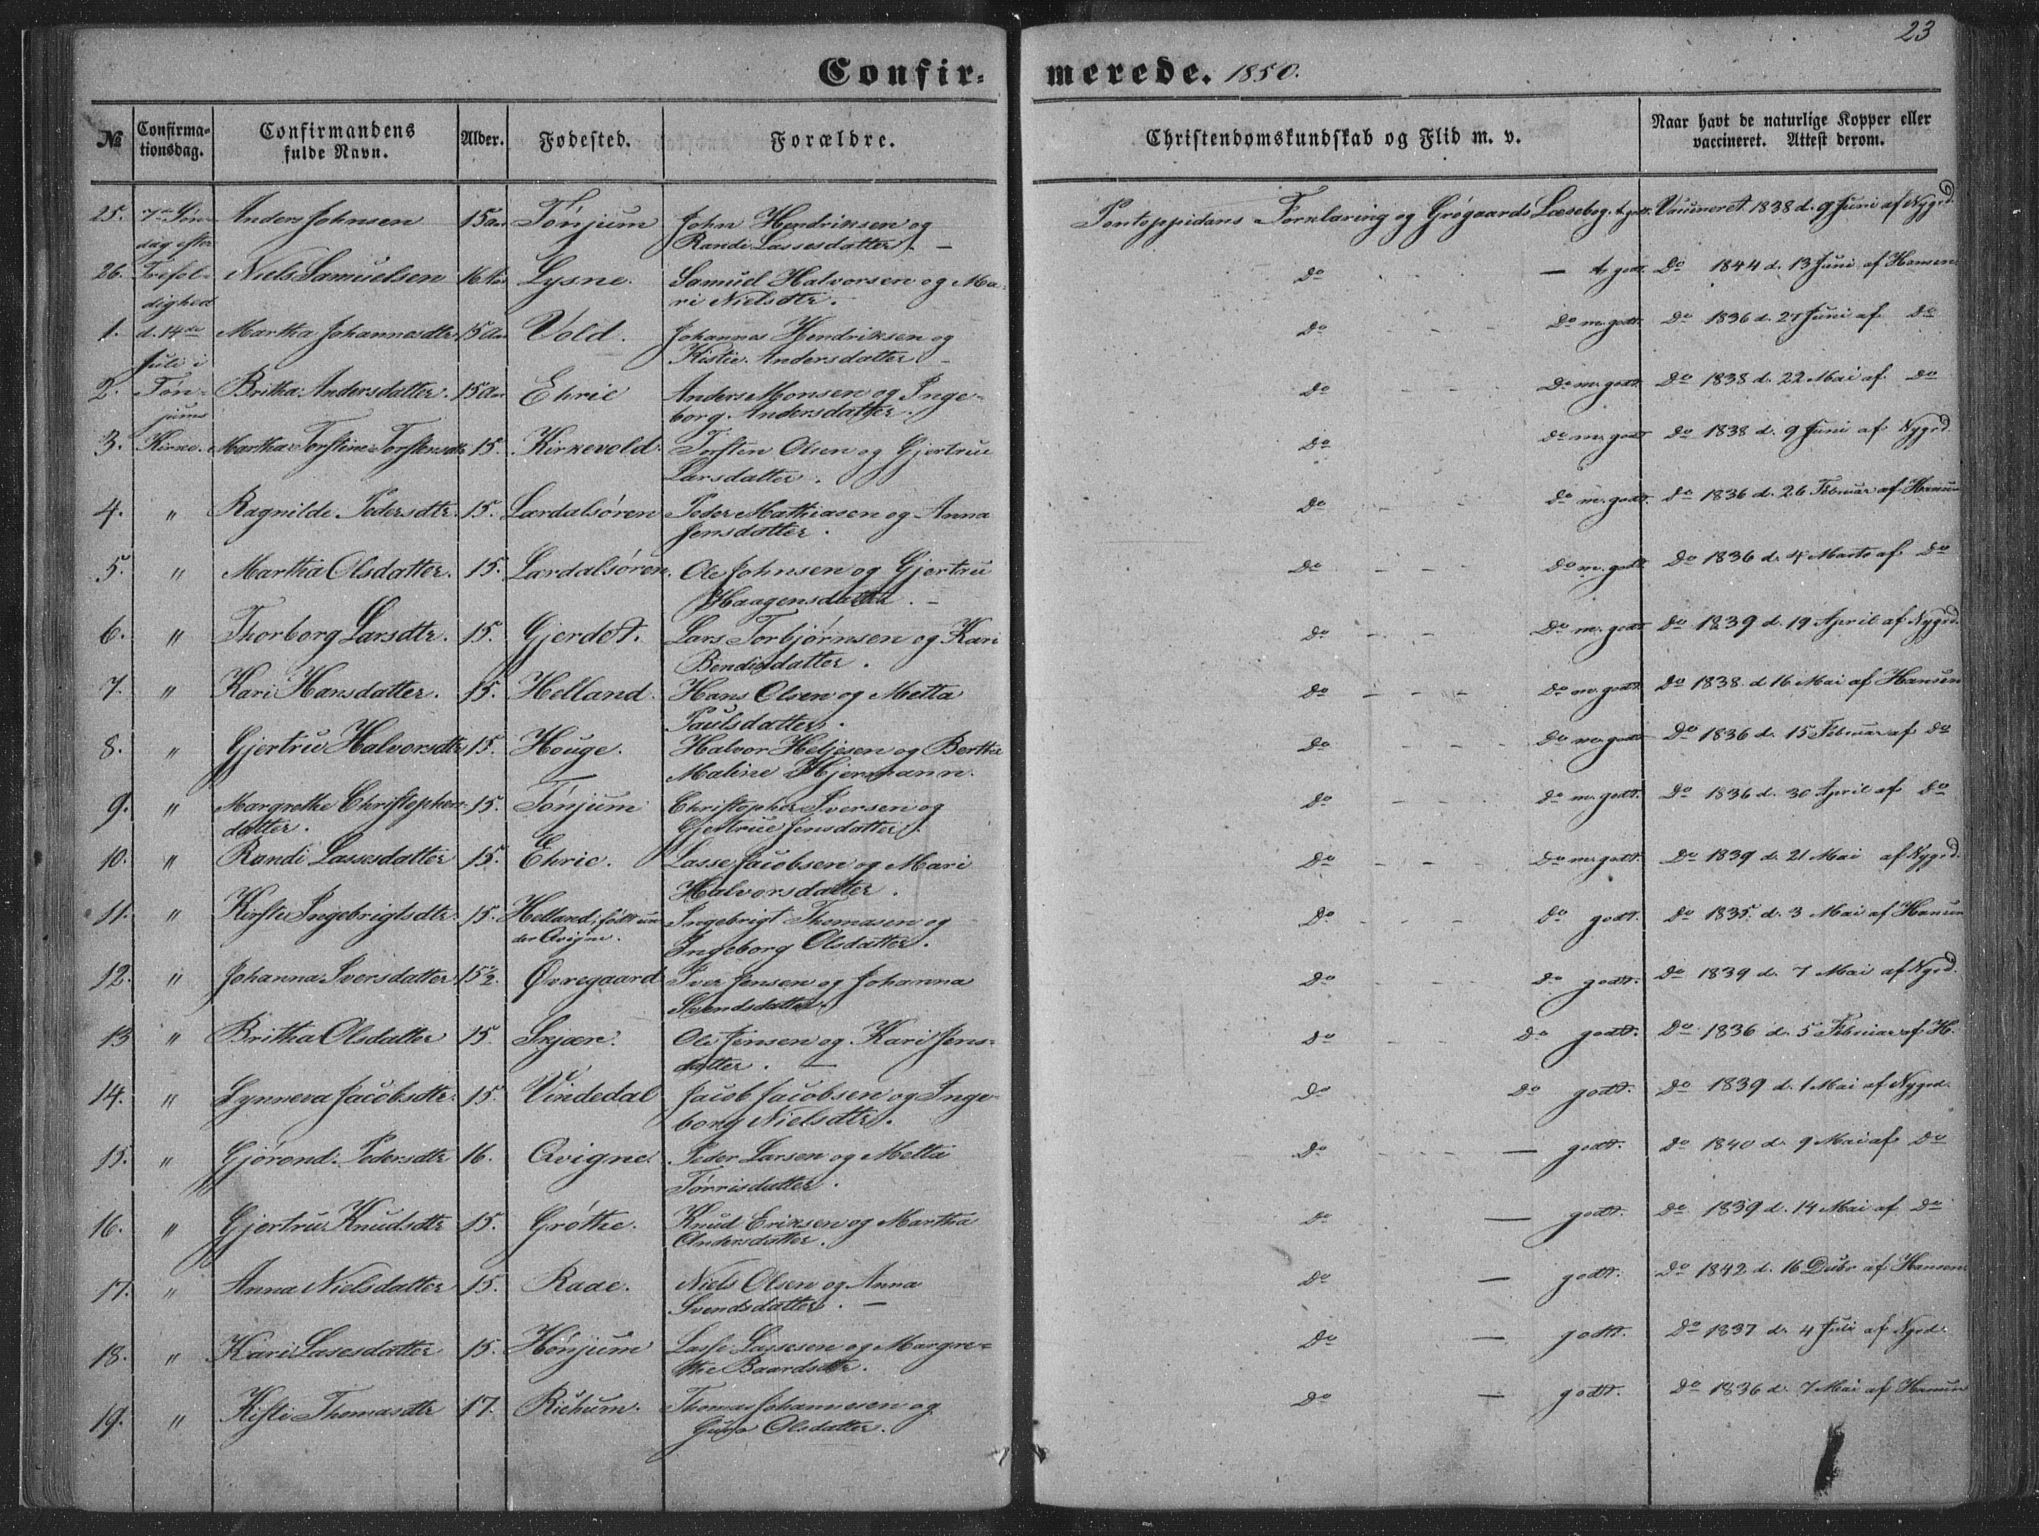 23
Confir- merede. 1850.
№ Confirmationsdag. Confirmandens fulde Navn. Alder. Fødested. Forældre. Christendomskundskab og Flid m. v. Naar havt de naturlige Kopper eller vaccineret. Attest derom.
25. 7de Søn- Anders Johnsen 15 Tønjum John Hendriksen og Pontoppidans Forklaring og Grøgaards Læsebog. Vaccineret 1838 d. 9 Juni af Nygrd.
dag efter Randi Lassesdatter. –
26. Trefol- Niels Samuelsen 16 Lysne. Samuel Halvorsen og Ma- Do — godt. Do 1844 d. 13 Juni af Hansen
dighed ri Nielsdtr. –
1. d. 14de Martha Johannesdtr 15 Vold. Johannes Hendriksen og Do Do m. godt. Do 1836 d. 27 Juni af Do
Juli i Kistie Andersdatter –
2. Tøn- Britha Andersdatter. 15 Ehrie Anders Monsen og Inge- Do Do m. godt. Do 1838 d. 22 Mai af Do
jums borg Andersdatter.
3. Kirke. Martha Torstine Torstensdtr 15. Kirkevold. Torsten Olsen og Gjertrue Do Do m. godt Do 1838 d. 9 Juni af Nygrd.
Larsdatter.
4. " Ragnilde Pedersdtr. 15. Lærdalsøren Peder Mathiasen og Anna Do Do m. godt. Do 1836 d. 26 Februar af Hansen
Jensdatter.
5. " Martha Olsdatter. 15. Lærdalsøren. Ole Johnsen og Gjertru Do Do m. godt. Do 1836 d. 4 Marts af Do
Haagensdatter. –
6. " Thorborg Larsdtr. 15. Gjerdet. Lars Torbjørnsen og Kari Do Do m. godt Do 1839 d. 19 April af Nygrd.
Bendixdatter.
7. " Kari Hansdatter. 15. Helland. Hans Olsen og Metta Do Do m. godt. Do 1838 d. 16 Mai af Hansen
Paulsdatter.
8. " Gjertru Halvorsdtr 15. Houge. Halvor Heljesen og Berthe Do Do m. godt Do 1836 d. 15 Februar af Do
Maline Hjermann.
9. " Margrethe Christophers- 15. Tønjum Christopher Iversen og Do Do m. godt. Do 1836 d. 30 April af Do
datter. Gjertrue Jensdatter.
10. " Randi Lassesdatter 15. Ehrie. Lasse Jacobsen og Mari Do Do m. godt. Do 1839 d. 21 Mai af Nygrd.
Halvorsdatter.
11. " Kirsti Ingebrigtsdtr. 15. Helland, født un- Ingebrigt Thomasen og Do Do godt. Do 1835 d. 3 Mai af Hansen
der Qvigne. Ingeborg Olsdatter.
12. " Johanna Iversdatter 15½. Øvregaard Iver Jensen og Johanna Do Do godt. Do 1839 d. 7 Mai af Nygrd.
Svendsdatter
13 " Britha Olsdatter 15. Skjær. Ole Jensen og Kari Jens- Do Do godt. Do 1836 d. 5 Februar af H.
datter. —
14. " Synneva Jacobsdtr. 15. Vindedal Jacob Jacobsen og Inge- Do Do godt. Do 1839 d. 1 Mai af Nygrd.
borg Nielsdtr.
15. " Gjørond. Pedersdtr 16. Qvigne. Peder Larsen og Metta Do — godt. Do 1840 d. 9 Mai af Do
Tørrisdatter.
16. " Gjertru Knudsdtr 15. Grøthe. Knud Eriksen og Martha Do — godt. Do 1839 d. 14 Mai af Do
Andersdatter.
17. " Anna Nielsdatter 15. Raae. Niels Olsen og Anna Do — godt. Do 1842 d. 16 Dcbr af Hansen
Svendsdatter. —
18. " Kari Lasesdatter 15. Hønjum Lasse Lassesen og Margre- Do — godt. Do 1837 d. 4 Juli af Nygrd.
the Baardsdtr.
19. " Kisti Thomasdtr 17. Richum. Thomas Johannesen og Do — godt. Do 1836 d. 7 Mai af Hansen
Olsdatter.